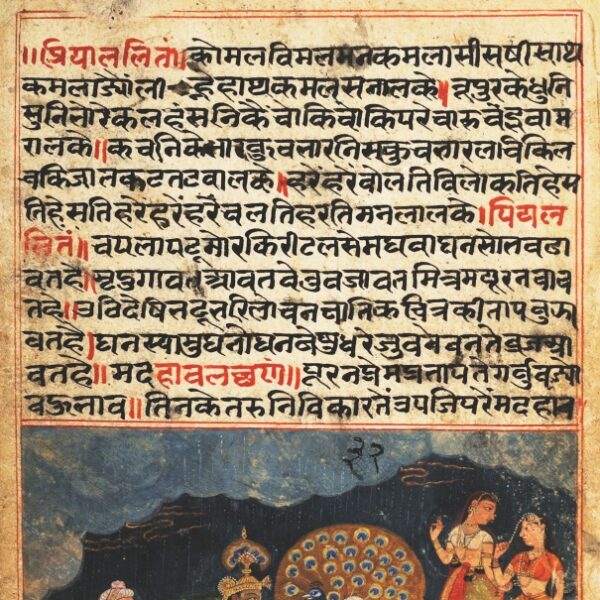 ॥प्रियाललितं॥कोमलविमलमनकमलासीसषीसाथ
कमलाज्यौंली हैहाथकमलसनालके॥नूपुरकेधुनि
सुनिभोरेकलहंसनिकेचौंकिचौंकिपरेचारुचेंटुवाम
रालके॥कचनिकेभारकुचभारनिसकुचभारलचिकिल
चकिजातकटतटवालके॥हरेंहरेंवोलतिविलोकतिहस
तिहरेंहरेंचलतिहरतिमनलालके॥पियल
लितं॥चपलापटमोरकिरीटलसेमघवाधनसोभवढा
वतहै॥मृदुगावतआवतवेनुवजावतमित्रमयूरनचाव
तहै॥उठिदेषिभटूभरिलोचनचातिकचित्रकीतापवुझा
वतहै॥घनस्यामघनेघनवेषुधरेजुवनेवनतेव्रजआ
वतहै॥मदहावलच्छण॥पूरनप्रेमप्रतापतेगर्वुवढ्यो
वहुभाव॥तिनकेतरुनिविकारतेंउपजिपरेमदहाव
३२